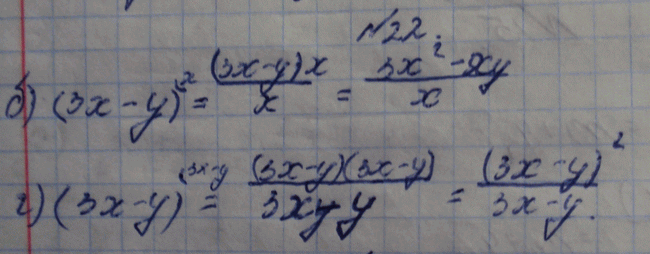 №22.
б) (3x-y)^x = (3x-y)x / x = 3x² - xy / x
г) (3x-y)^(3x-y = (3x-y)(3x-y) / 3x-y = (3x-y)² / 3x-y.